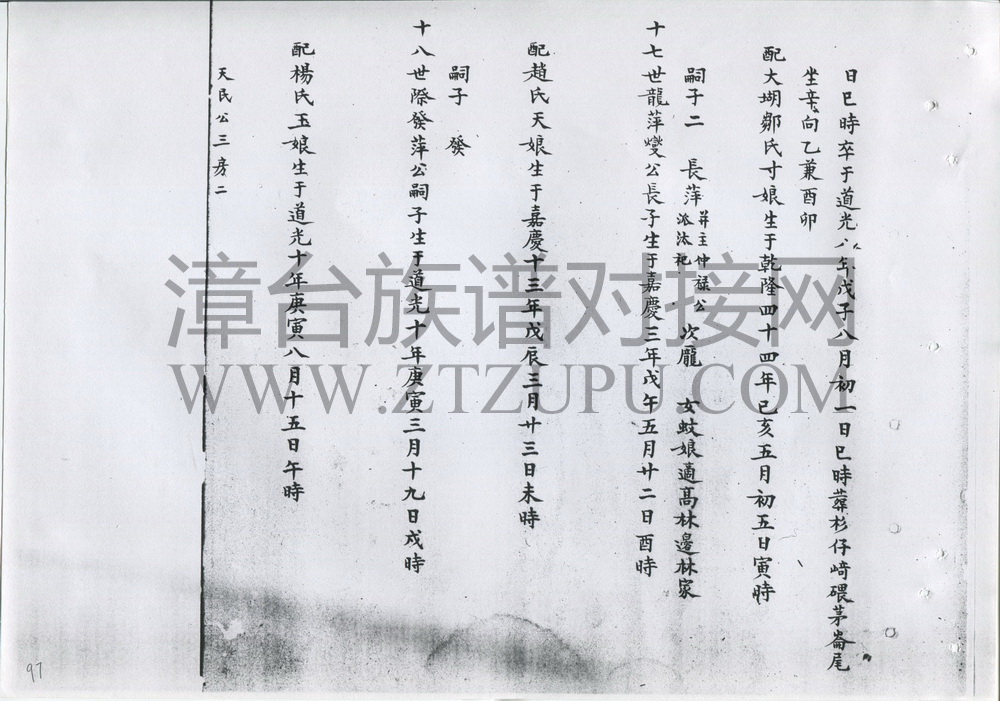 日巳時卒于道光八年戊子八月初一日巳時葬杉仔崎碨茅崙尾
坐辛向乙兼酉卯
配大坳鄒氏寸娘生于乾隆四十四年己亥五月初五日寅時
嗣子二 長萍 並主仲祿公
派汰祀 次龐 女蚊娘適高林邊林家
十七世龍萍燮公長子生于嘉慶三年戊午五月廿二日酉時
配趙氏天娘生于嘉慶十三年戊辰三月廿三日未時
嗣子 發
十八世際發萍公嗣子生于道光十年庚寅三月十九日戌時
配楊氏玉娘生于道光十年庚寅八月十五日午時
天民公三房二
漳台族谱对接网
WWW.ZTZUPU.COM
97